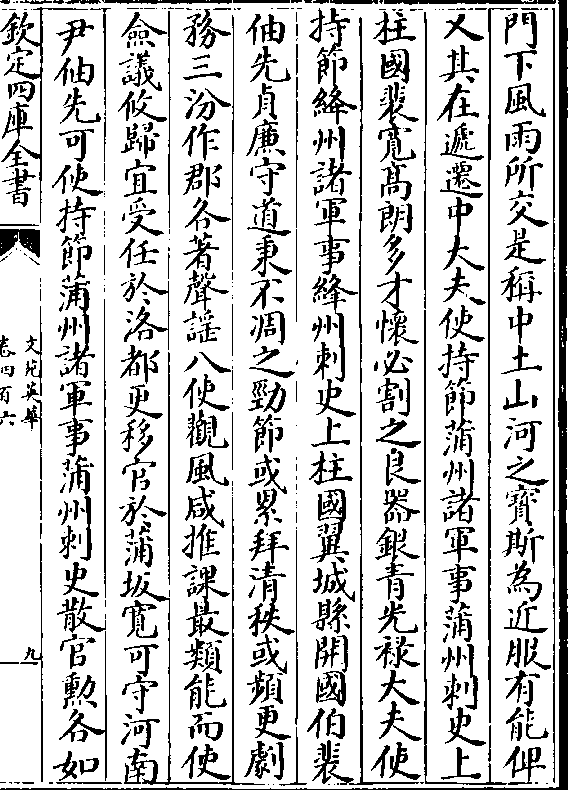 門下風雨所交是稱中土山河之寶斯為近服有能俾
乂其在遞遷中大夫使持節蒲州諸軍事蒲州刺史上
柱國裴寛髙朗多才懷必割之良器銀青光祿大夫使
持節絳州諸軍事絳州刺史上柱國翼城縣開國伯裴
伷先貞廉守道秉不凋之勁節或累拜清秩或頻更劇
務三汾作郡各著聲謡八使觀風咸推課最類能而使
僉議攸歸宜受任於洛都更移官於蒲坂寛可守河南
尹伷先可使持節蒲州諸軍事蒲州刺史散官勲各如
欽定四庫全書
文苑英華
卷四百六
九